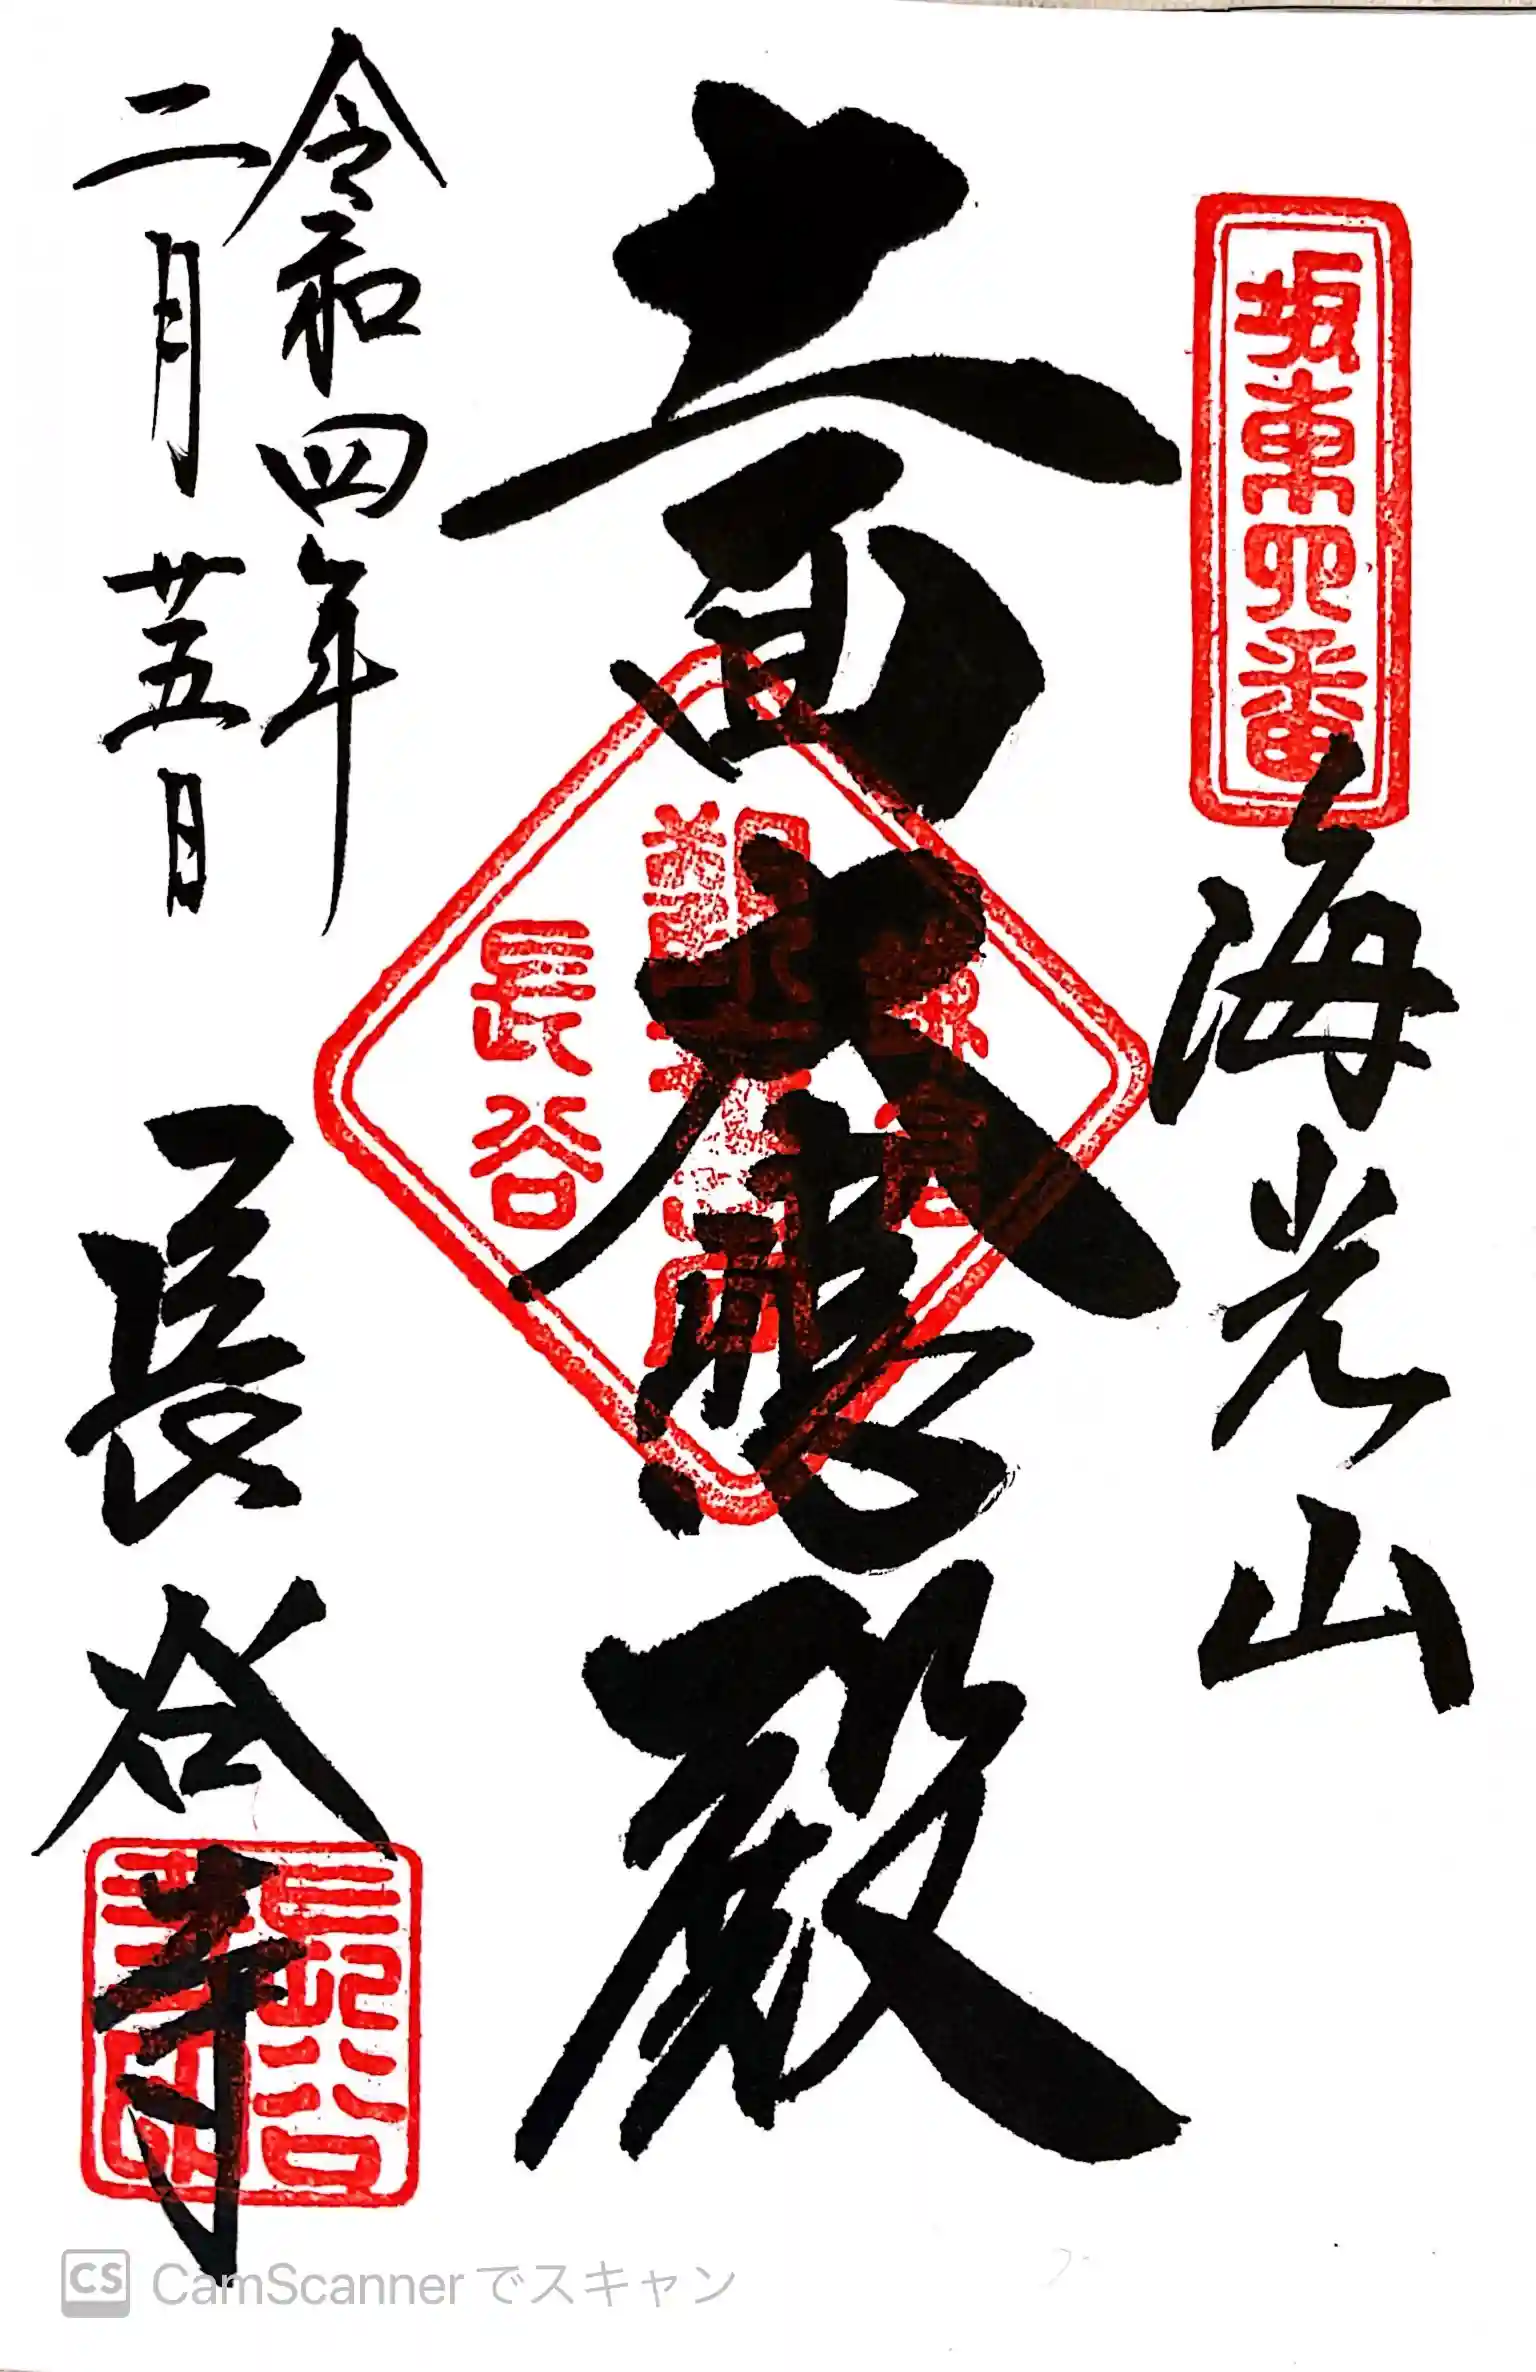 坂東四番
海光山
大悲殿
長谷
令和四年
二月廿五日
長谷寺
CS CamScannerでスキャン